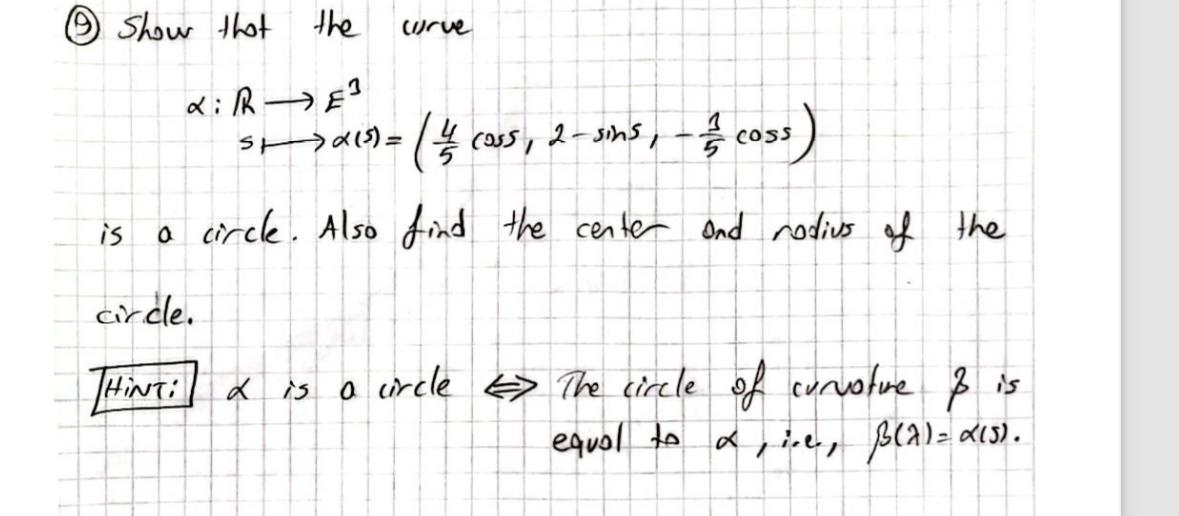 ⑨ Show that the curve
α: ℝ → E³
s ↦ α(s) = (4/5 cos s, 2 - sin s, -3/5 cos s)
is a circle. Also find the center and radius of the
circle.
HINT: α is a circle ⇔ The circle of curvature β is
equal to α, i.e., β(λ) = α(s).